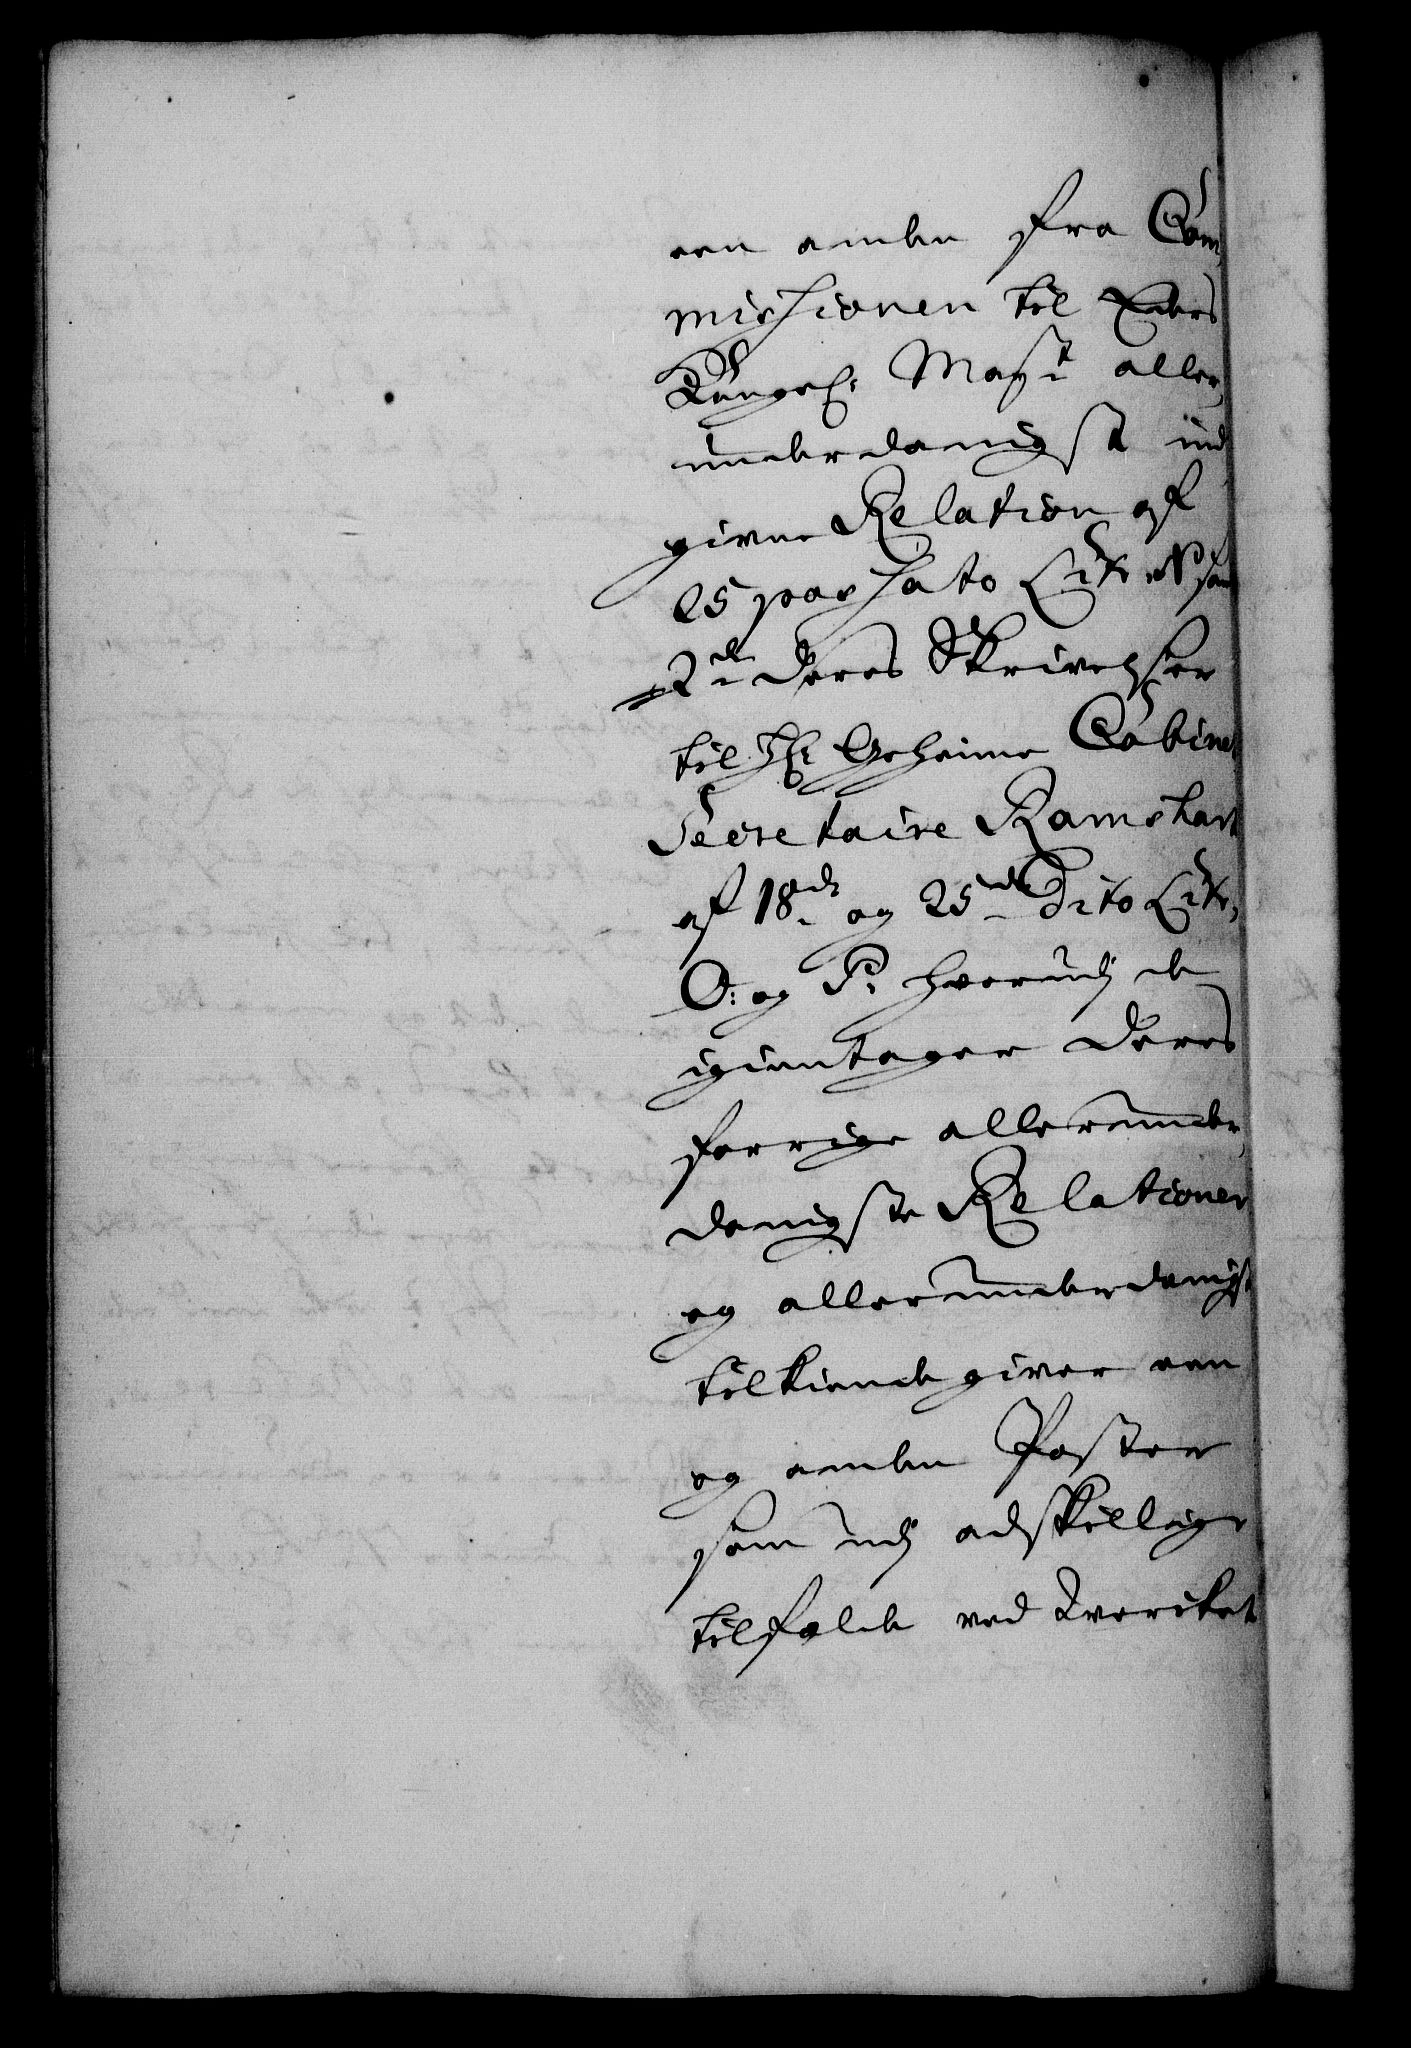 een anden fra Com¬
mishionen til Eders
Kongel: Mayt aller¬
underdanigst ind
givne Relation af
25 passato Litr: N sam
2de deres Skrivelser
til Hr: Geheime Cabinet
Secretaire Ramshart
af 18de og 25de Dito Litr:
O: og P: hvorudj de
igientager deres
forrige allerunder¬
danigste Relationer
og allerunderdanigst
tilkiende giver een
og anden Poster
som udj adskillige
tilfælde ved Verket